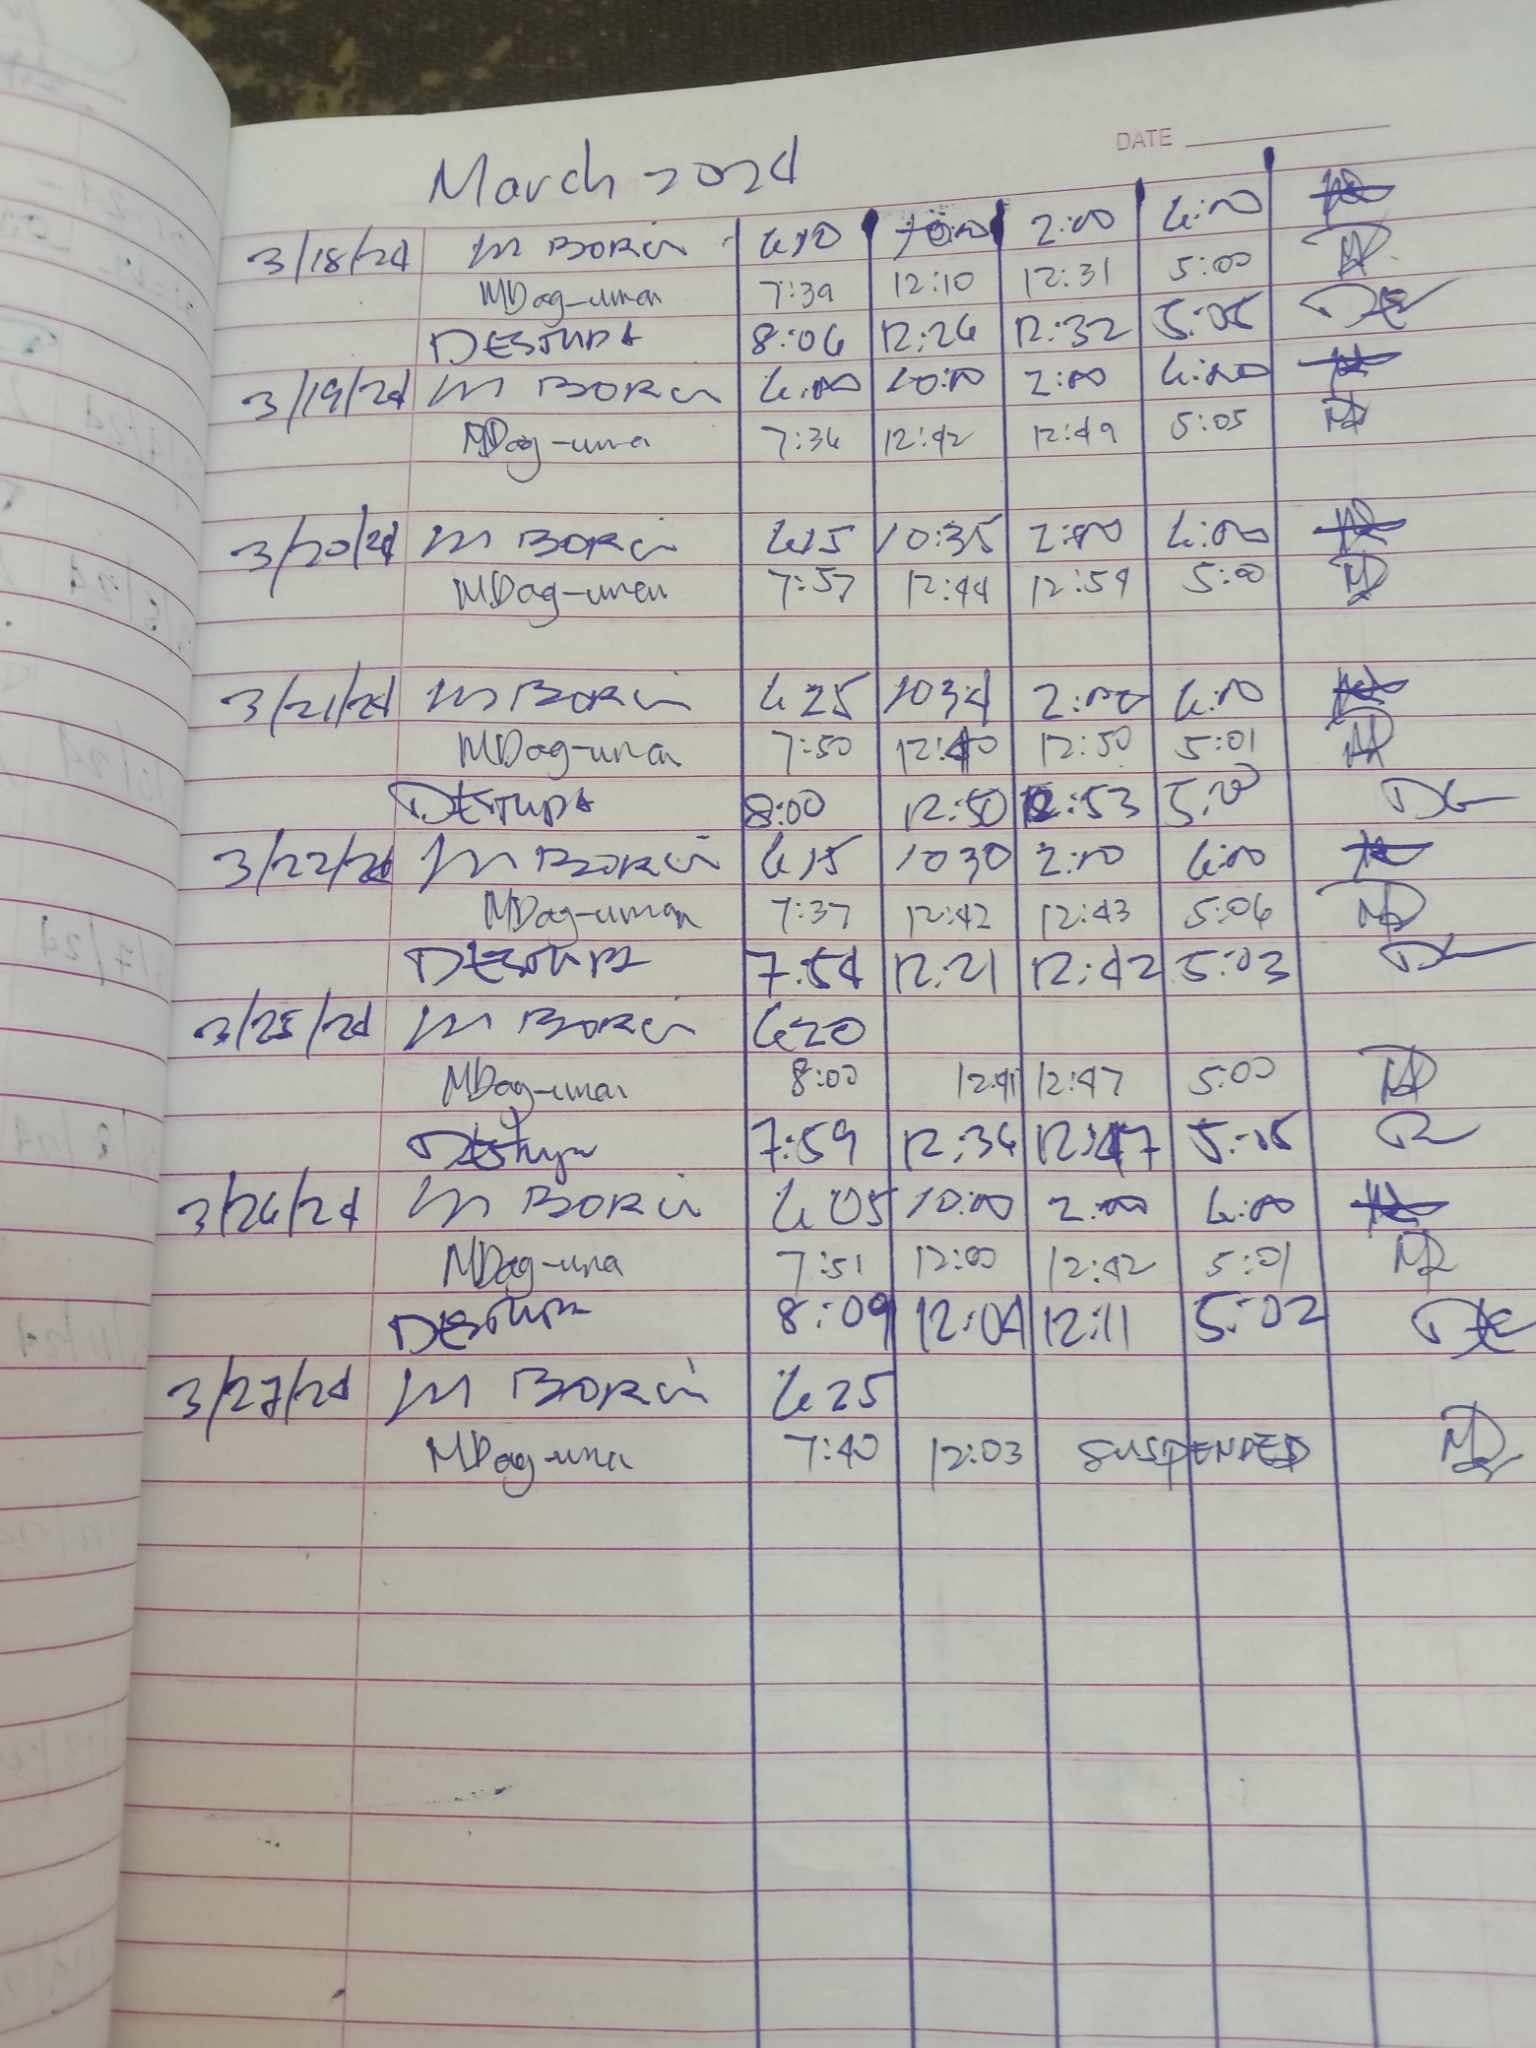 DATE
March 2024
3/18/24 M BORCI 6:10 10:00 2:00 6:00
MDag-uman 7:39 12:10 12:31 5:00 MD
DESTUPA 8:06 12:26 12:32 5:05 DE
3/19/24 M BORCI 6:00 10:00 2:00 6:00
MDag-uman 7:36 12:42 12:49 5:05 MD
3/20/24 M BORCI 6:15 10:35 2:00 6:00
MDag-uman 7:57 12:44 12:54 5:00 MD
3/21/24 M BORCI 6 25 10 34 2:00 6:00
MDag-uman 7:50 12:40 12:50 5:01 MD
DESTUPA 8:00 12:50 12:53 5:00
3/22/24 M BORCI 6 15 10 30 2:00 6:00
MDag-uman 7:37 12:42 12:43 5:06 MD
DESTUPA 7:54 12:21 12:42 5:03
3/25/24 M BORCI 6 20
MDag-uman 8:00 12:41 12:47 5:00 MD
DEStupa 7:59 12:36 12:47 5:15
3/26/24 M BORCI 6 05 10:00 2:00 6:00
MDag-uma 7:51 12:00 12:42 5:01 MD
DESTUPA 8:09 12:04 12:11 5:02 DE
3/27/24 M BORCI 6 25
MDag-uma 7:40 12:03 SUSPENDED MD